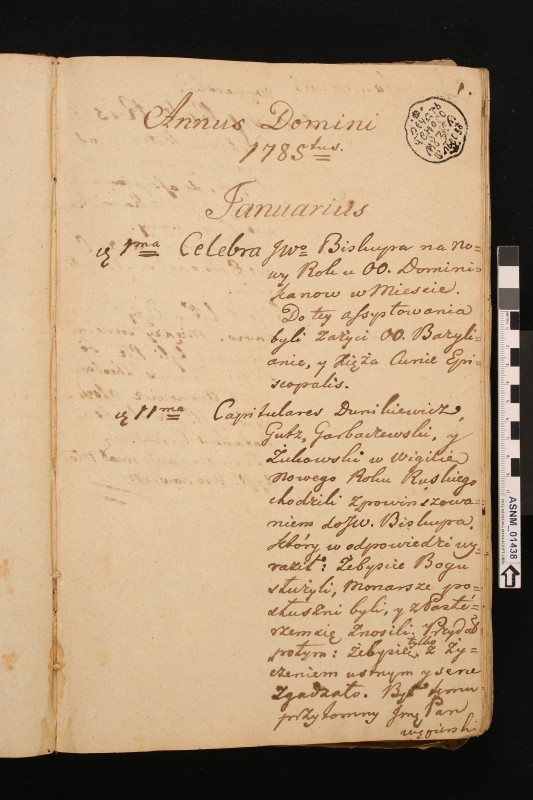 1.
Annus Domini
1785tus.
Januarius
1ma Celebra Jwo Biskupa na no=
wy Rok u OO. Domini=
kanow w Mieście.
Do tey assystowania
byli zażyci OO. Bazyli=
anie, y Xięża Curiæ Epi=
scopalis.
11ma Capitulares Dunikiewicz,
Gutz, Garbaczewski, y
Żukowski w Wigilię
Nowego Roku Ruskiego
chodzili z powinszowa=
niem do Jw. Biskupa.
Który w odpowiedzi wy=
raził: Żebyście Bogu
służyli, Monarsze po=
słuszni byli, y z Pasté=
rzem się znosili. Przydał
potym: Żebyście tylko z Ży=
czeniem ustnym y serce
zgadzało. Był temu
przytomny Jmć Pan
węgierski
ASNM_01438